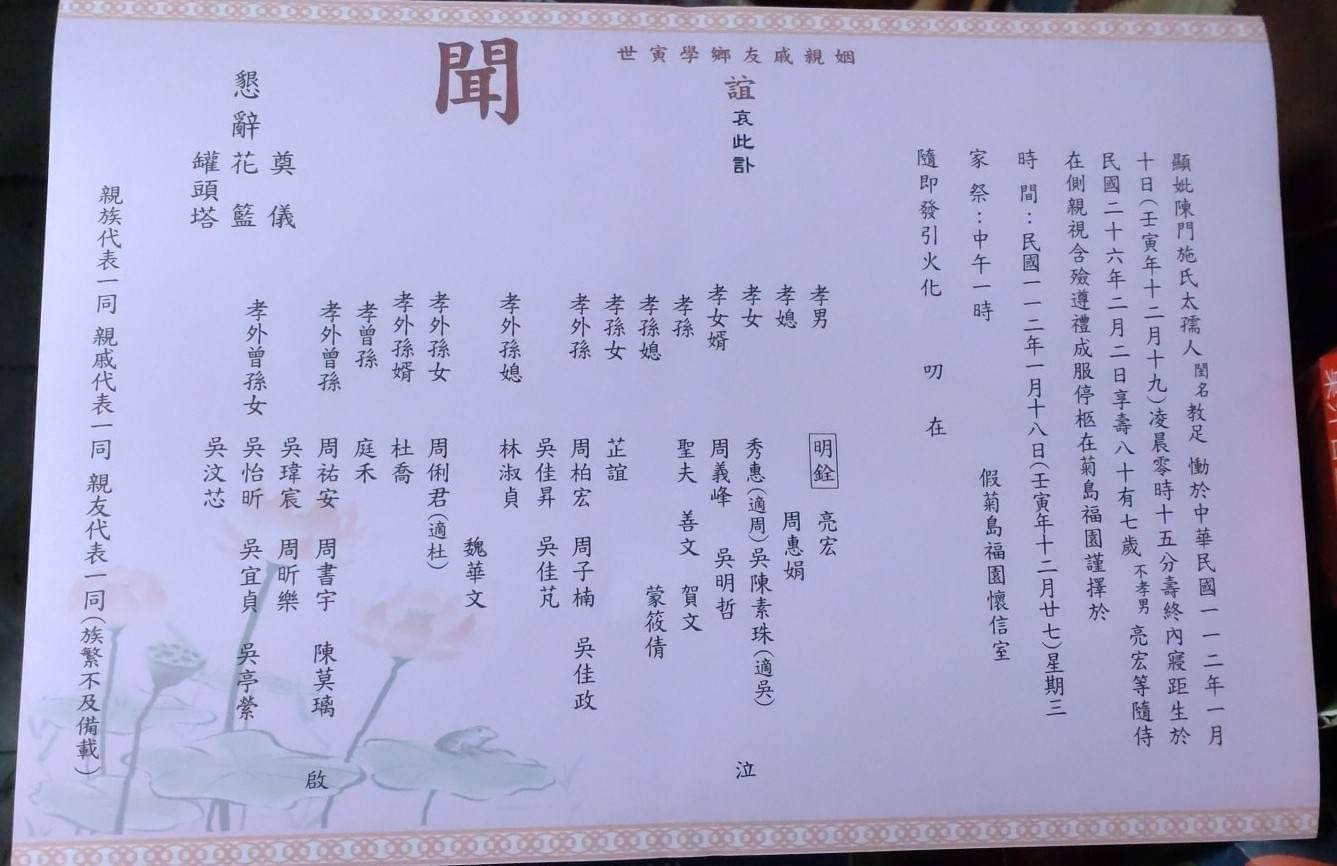 顯妣陳門施氏太孺人閨名教足 慟於中華民國一一二年一月
十日(壬寅年十二月十九)凌晨零時十五分壽終內寢距生於
民國二十六年二月二日享壽八十有七歲不孝男亮宏等隨侍
在側親視含殮遵禮成服停柩在菊島福園謹擇於
時間:民國一一二年一月十八日(壬寅年十二月廿七)星期三
假菊島福園懷信室
家祭:中午一時
隨即發引火化 叨在
姻親戚友鄉學寅世
誼哀此訃
聞
孝男 明銓 亮宏
孝媳 周惠娟
孝女 秀惠(適周)吳陳素珠(適吳)
孝女婿 周義峰 吳明哲
孝孫 聖夫 善文 賀文
孝孫媳 蒙筱倩
孝孫女 芷誼
孝外孫 周柏宏 周子楠 吳佳政
吳佳昇 吳佳芃
孝外孫媳 林淑貞
魏華文
孝外孫女 周俐君(適杜)
孝外孫婿 杜喬
孝曾孫 庭禾
孝外曾孫 周祐安 周書宇 陳莫璃
吳瑋宸 周昕樂
孝外曾孫女 吳怡昕 吳宜貞 吳亭縈
吳汶芯
泣
啟
懇辭
奠儀
花籃
罐頭塔
親族代表一同 親戚代表一同 親友代表一同(族繁不及備載)